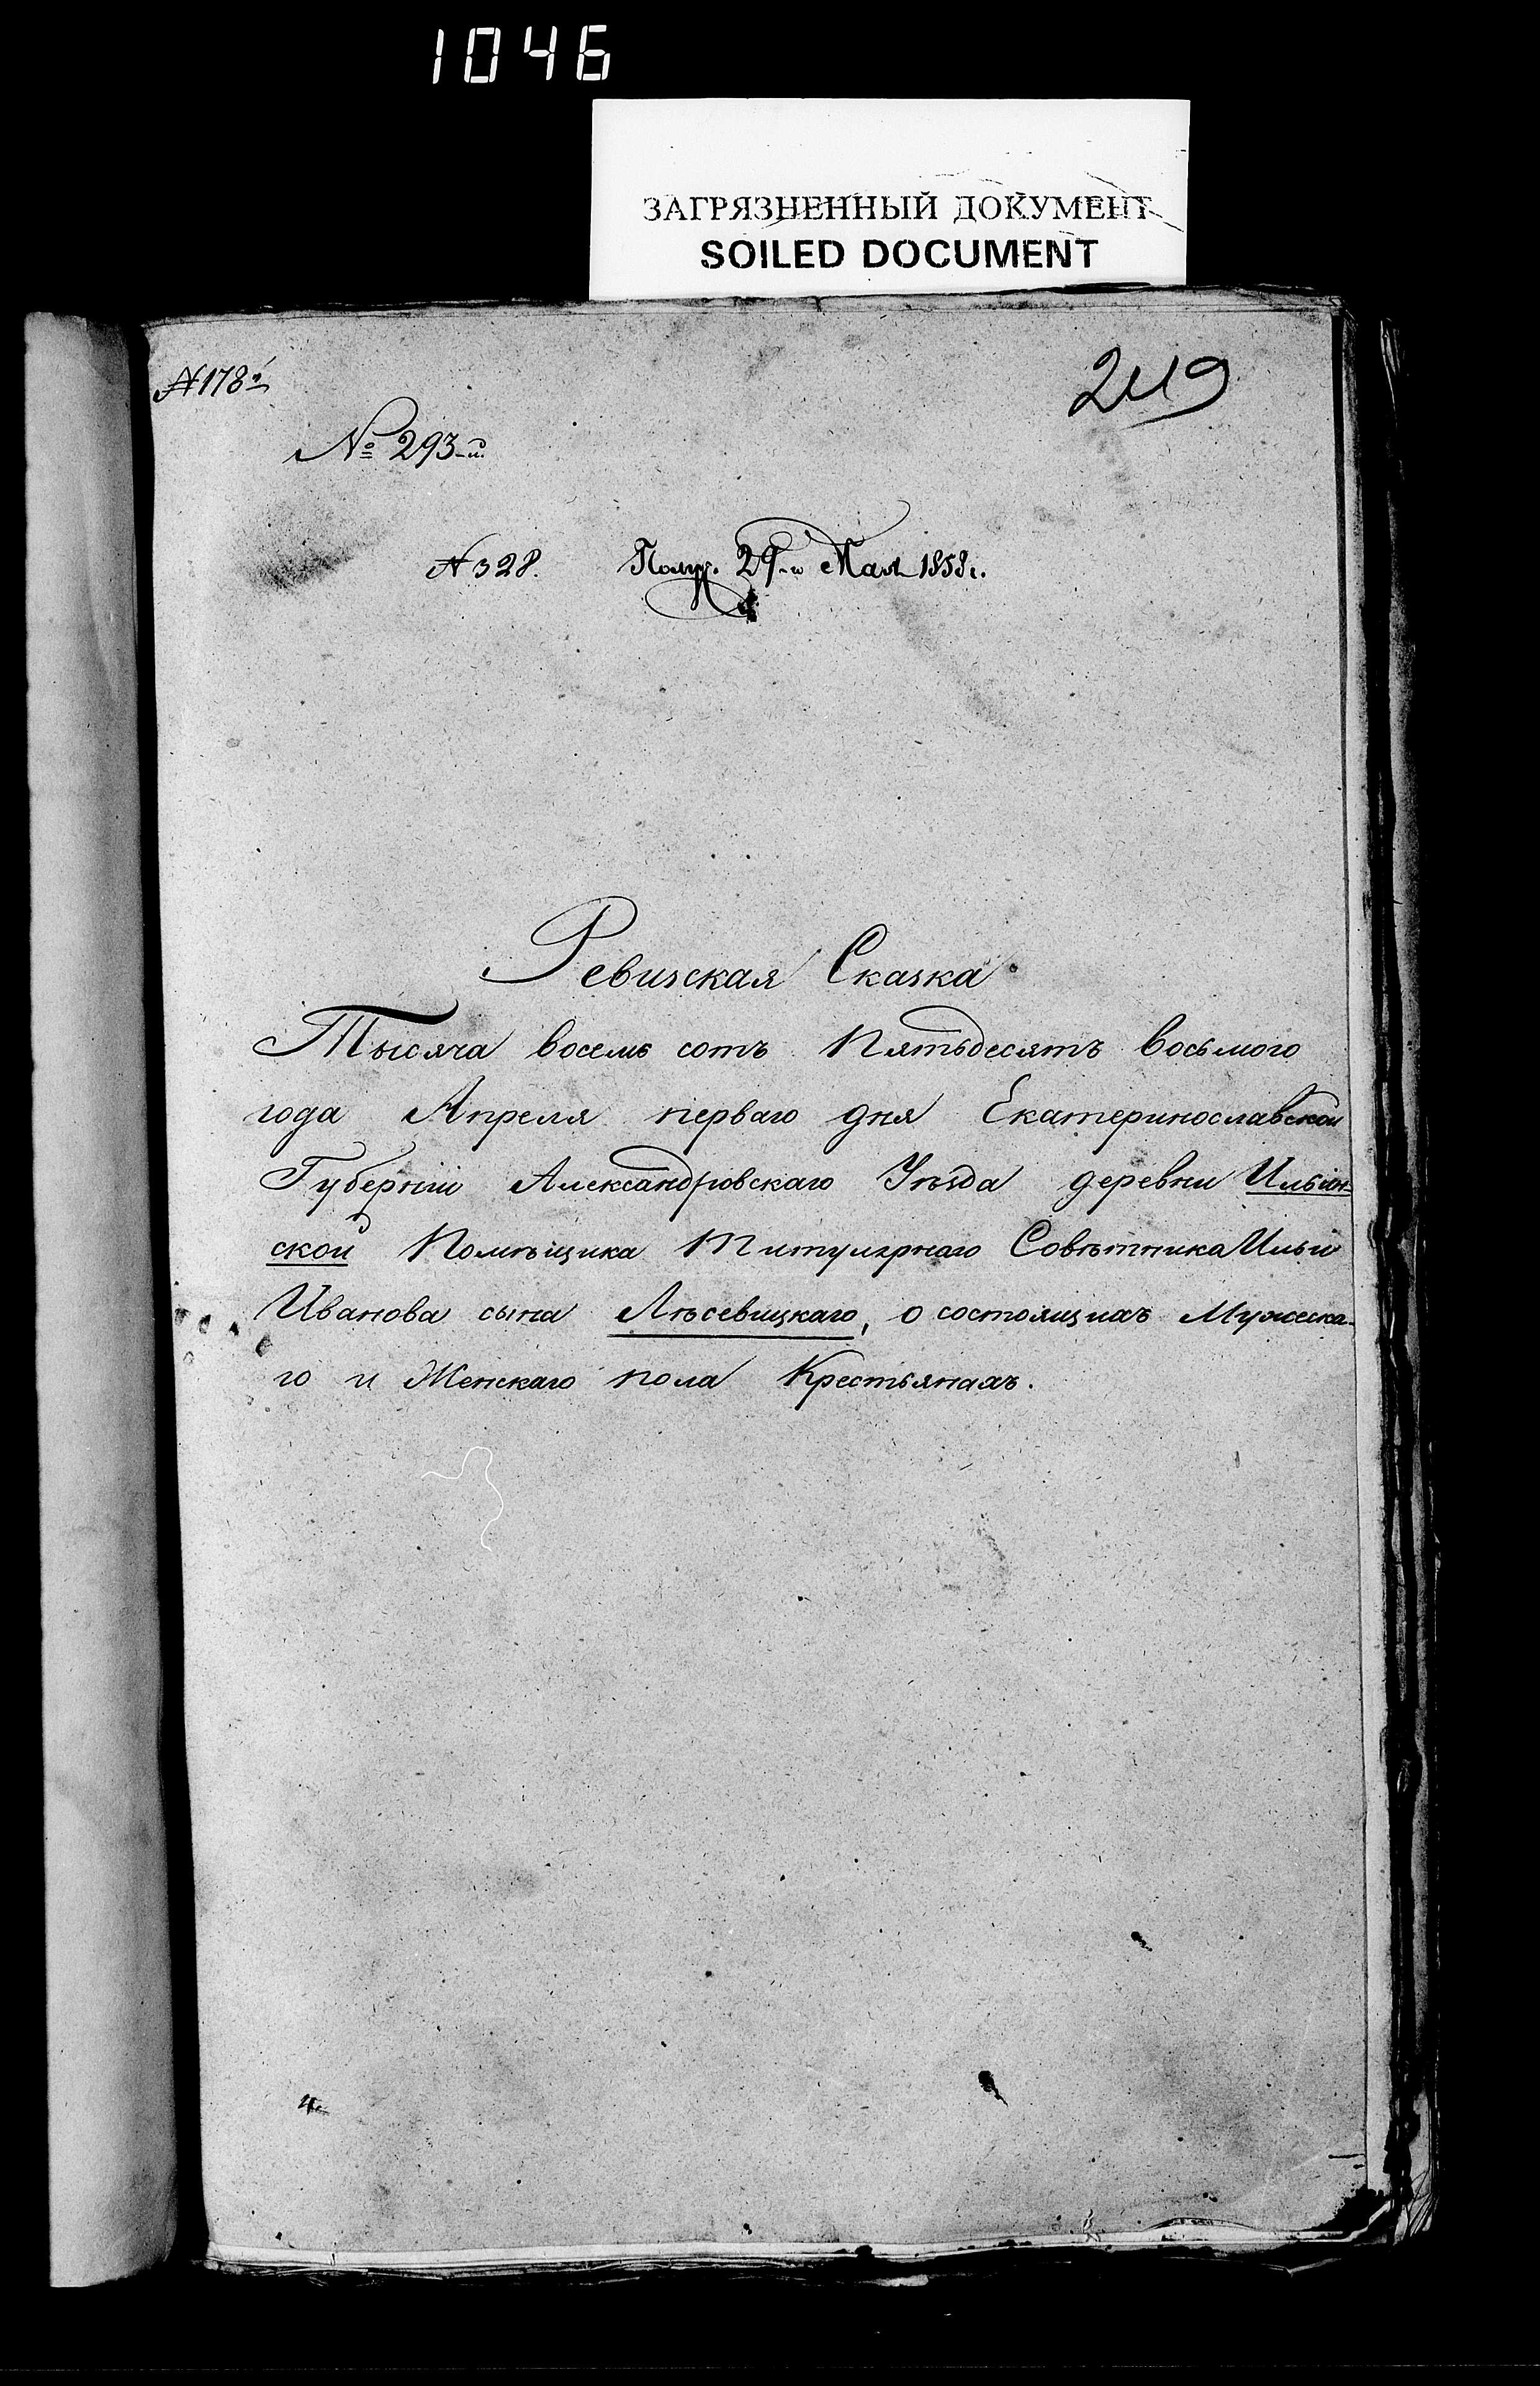 1046
ЗАГРЯЗНЕННЫЙ ДОКУМЕНТ
SOILED DOCUMENT
№178й
249
№ 293-й.
№328. Получ. 29-го Мая 1858 г.
Ревизская Сказка
Тысяча восемь сотъ Пятьдесятъ восьмого
года Апреля перваго дня Екатеринославской
Губерніи Александровскаго Уѣзда деревни Ильин-
ской Помѣщика Титулярнаго Совѣтника Ильи
Иванова сына Лѣсевицкаго, о состоящихъ Мужеска-
го и Женскаго пола Крестьянахъ.